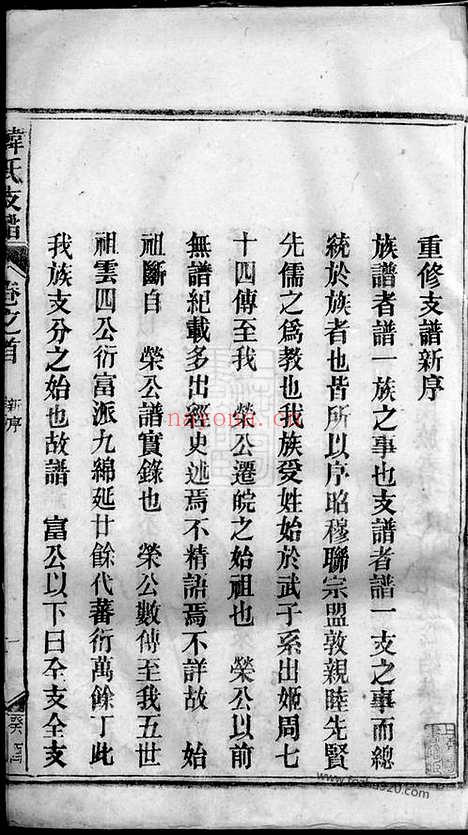 重修支譜新序
族譜者譜一族之事也支譜者譜一支之事而總
統於族者也皆所以序昭穆聯宗盟敦親睦先賢
先儒之為教也我族受姓始於武子系出姬周七
十四傳至我 榮公遷皖之始祖也 榮公以前
無譜紀載多出經史述焉不精語焉不詳故 始
祖斷自 榮公譜實錄也 榮公數傳至我五世
祖雲四公衍富派九綿延廿餘代蕃衍萬餘丁此
我族支分之始也故譜 富公以下曰仝支全支
韓氏支譜 卷之首 新序 一
nayona.cn